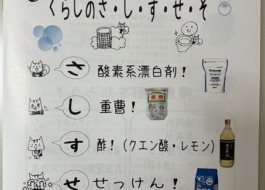 くらしのさ・し・す・せ・そ
さ 酸素系漂白剤！
し 重曹！
す 酢！（クエン酸・レモン）
せ せっけん！